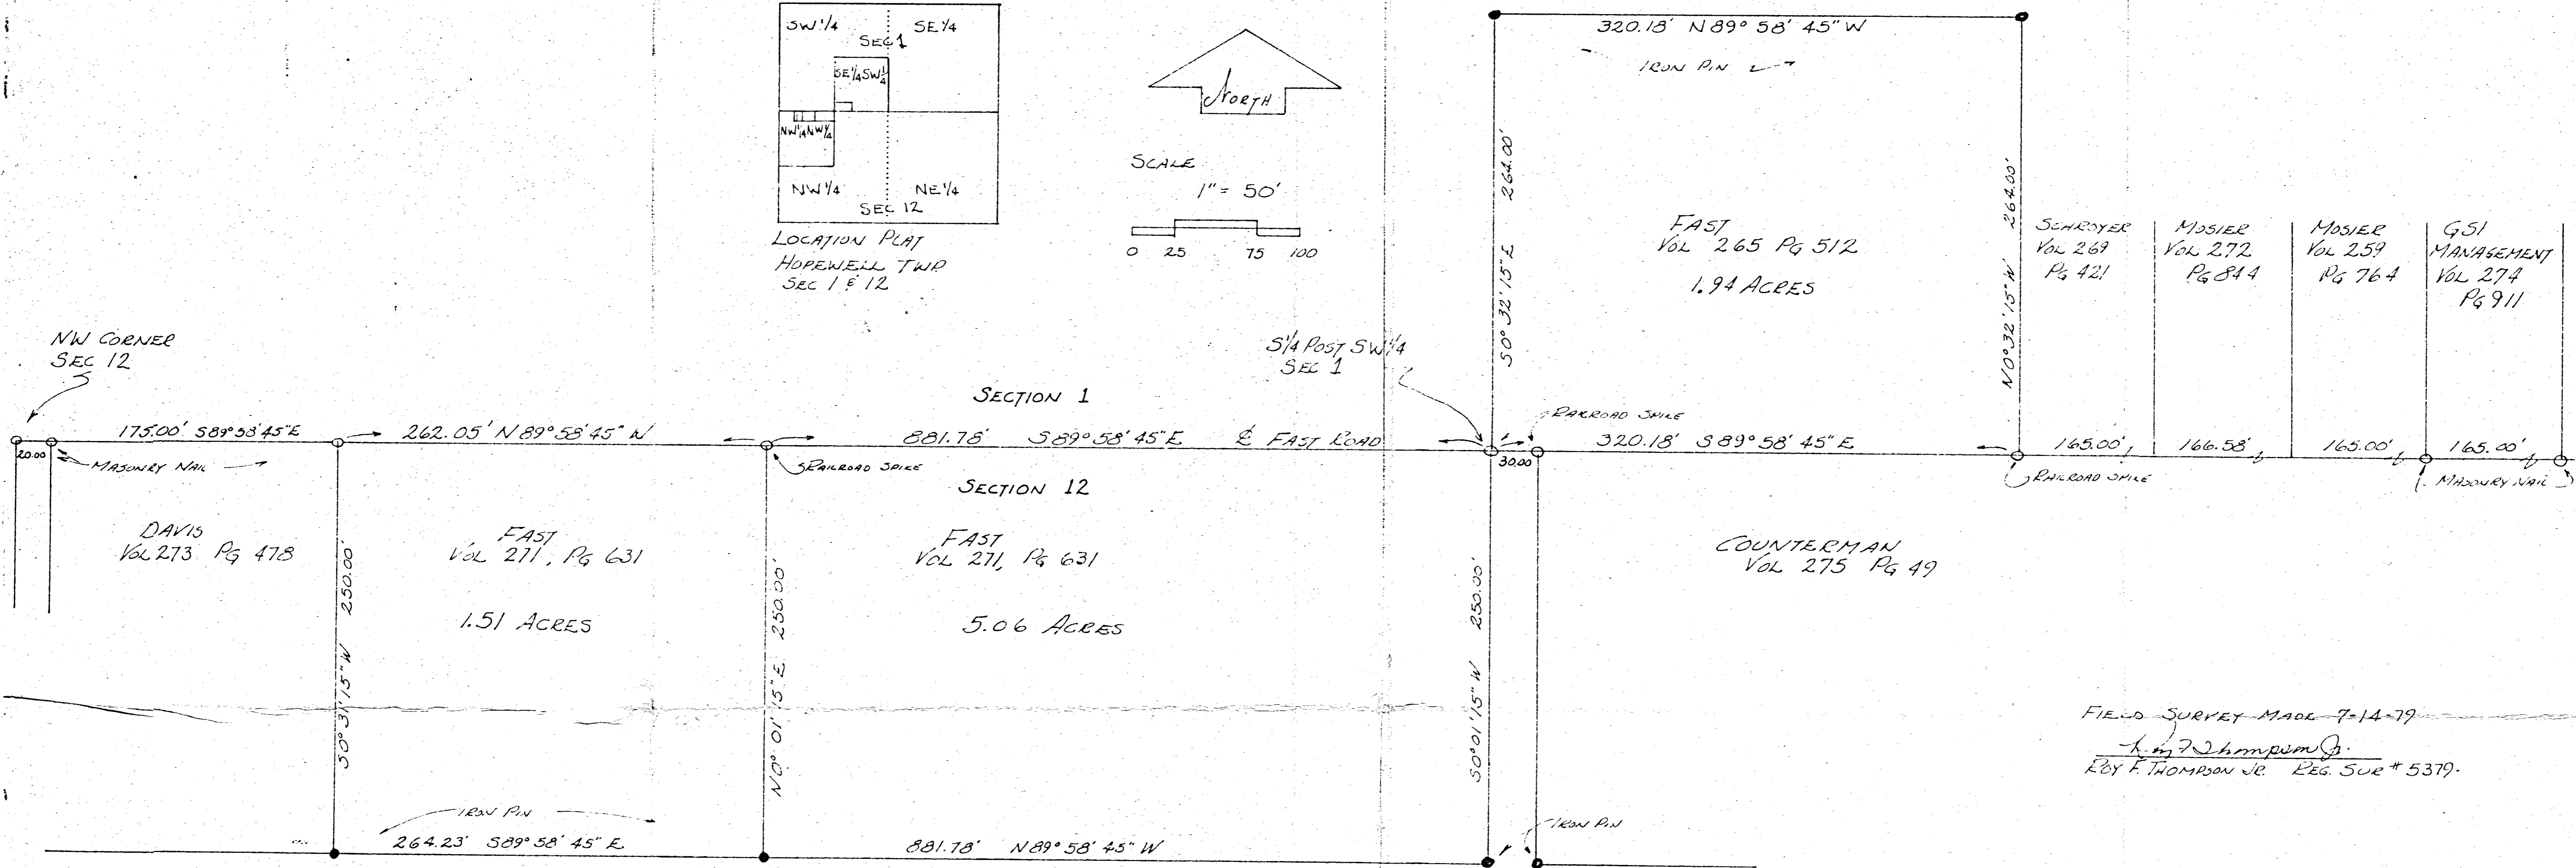 SW 1/4 SE 1/4
SEC 1
SE 1/4 SW 1/4
NW 1/4 NW 1/4
NW 1/4 NE 1/4
SEC 12
LOCATION PLAT
HOPEWELL TWP
SEC 1 & 12
NORTH
SCALE
1" = 50'
0 25 75 100
320.18' N 89° 58' 45" W
IRON PIN
S0° 32' 15" E 264.00'
FAST
VOL 265 PG 512
1.94 ACRES
N0° 32' 15" W 264.00'
SCHROYER
VOL 269
PG 421
MOSIER
VOL 272
PG 844
MOSIER
VOL 259
PG 764
GSI
MANAGEMENT
VOL 274
PG 911
NW CORNER
SEC 12
S 1/4 POST SW 1/4
SEC 1
SECTION 1
RAILROAD SPIKE
175.00' S89°58'45"E
262.05' N89°58'45" W
881.78' S89°58'45"E ℄ FAST ROAD
320.18' S89°58'45"E
165.00'
166.58'
165.00'
165.00'
20.00
MASONRY NAIL
RAILROAD SPIKE
30.00
RAILROAD SPIKE
MASONRY NAIL
SECTION 12
DAVIS
VOL 273 PG 478
S0° 31' 15" W 250.00'
FAST
VOL 271, PG 631
1.51 ACRES
N0° 01' 15" E 250.00'
FAST
VOL 271, PG 631
5.06 ACRES
S0° 01' 15" W 250.00'
COUNTERMAN
VOL 275 PG 49
FIELD SURVEY MADE 7-14-79
Roy F Thompson Jr.
ROY F. THOMPSON JR. REG. SUR # 5379.
IRON PIN
264.23' S89° 58' 45" E
881.78' N89° 58' 45" W
IRON PIN